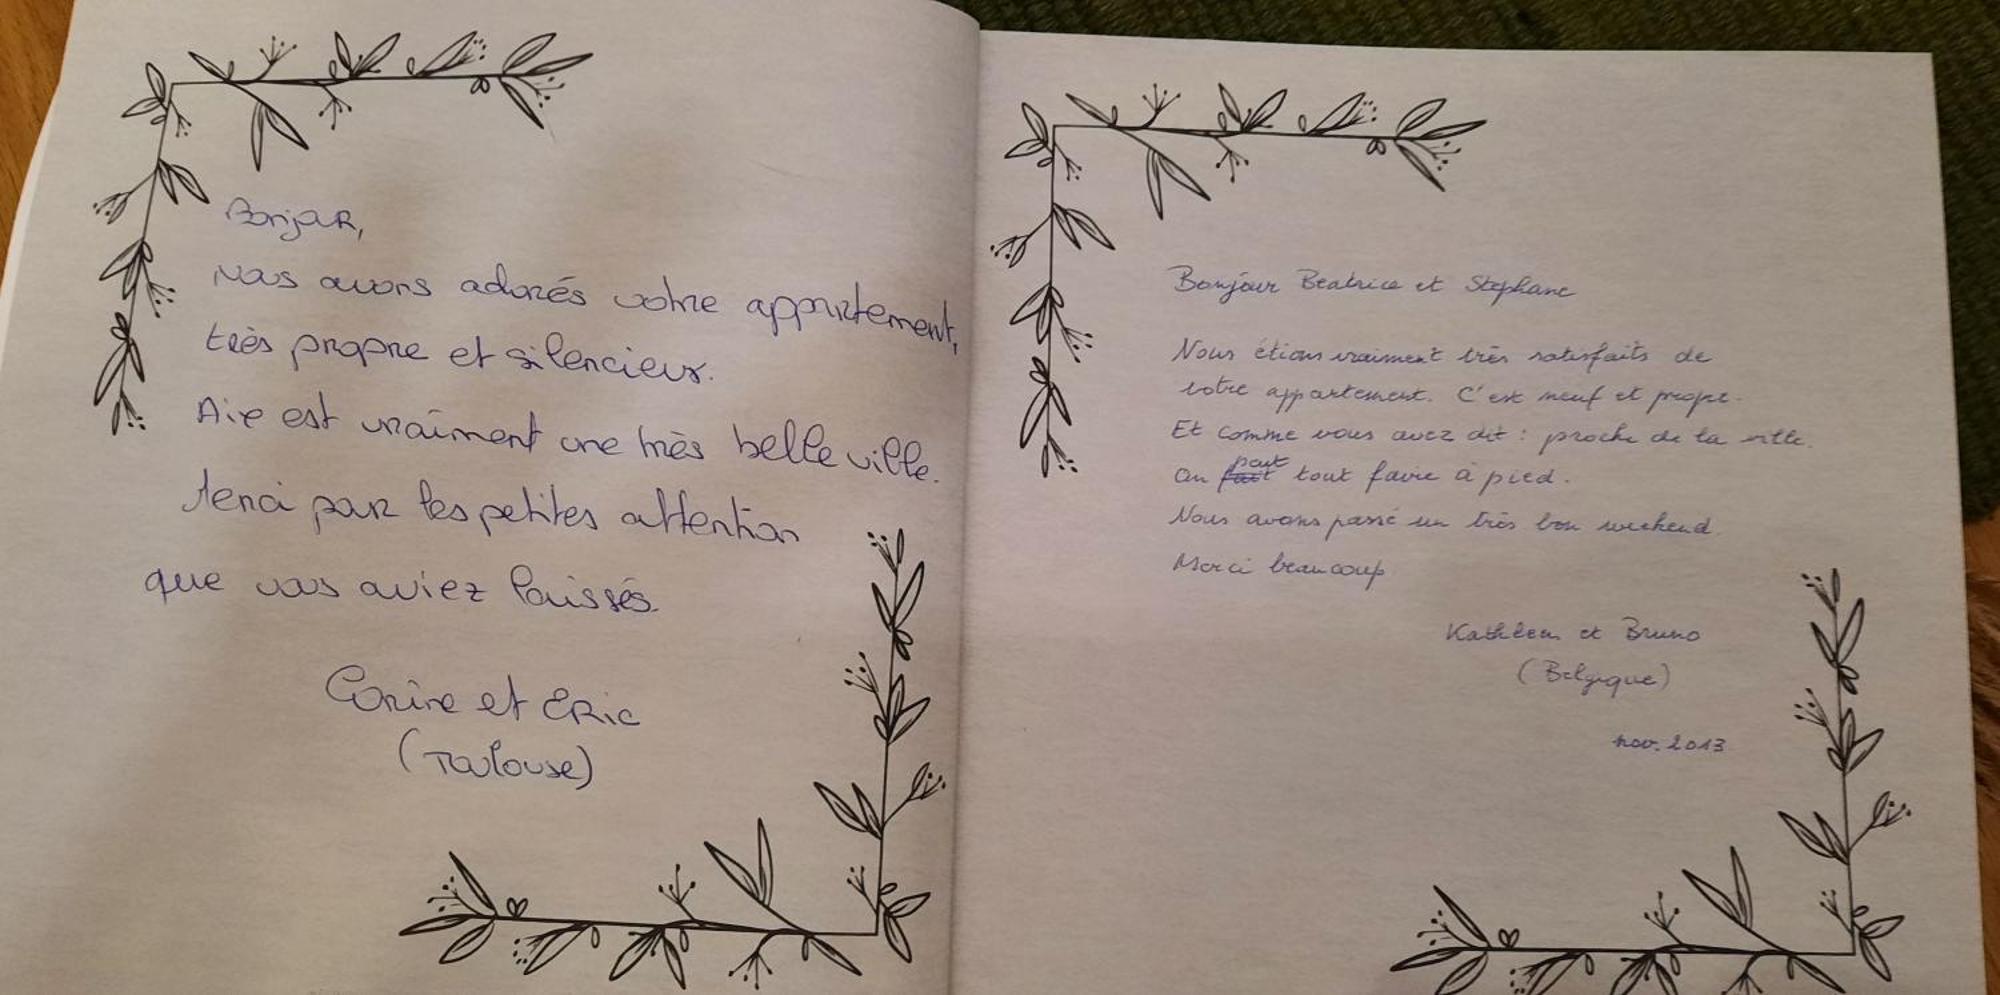 Bonjour,
Nous avons adorés votre appartement,
très propre et silencieux.
Aix est vraiment une très belle ville.
Merci pour les petites attention
que vous aviez laissés.
Corine et ERic
(Toulouse)
Bonjour Beatrice et Stephane
Nous étions vraiment très satisfaits de
votre appartement. C'est neuf et propre.
Et comme vous avez dit : proche de la ville.
On peut tout faire à pied.
Nous avons passé un très bon weekend.
Merci beaucoup
Kathleen et Bruno
(Belgique)
nov. 2013